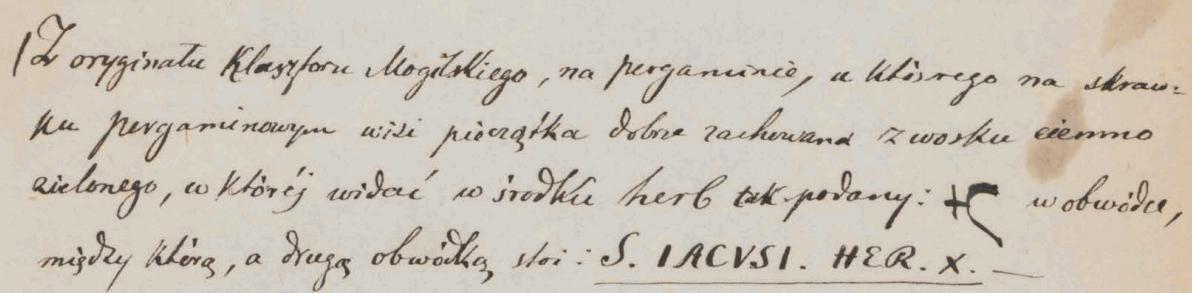 (Z oryginału Klasztoru Mogilskiego, na pergaminie, u którego na skraw=
ku pergaminowym wisi pieczątka dobrze zachowana z wosku ciemno
zielonego, w któréj widać w środku herb tak podany: w obwódce,
między którą, a drugą obwódką stoi: S. IACVSI. HER. X. —